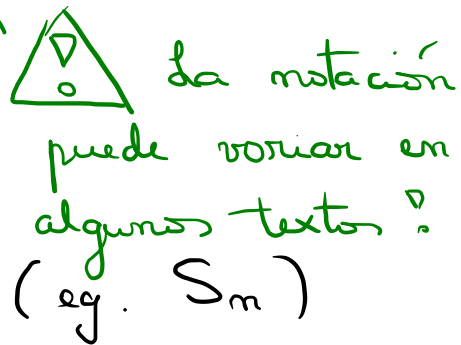 ⚠ La notación
puede variar en
algunos textos!
(eg. Sn)